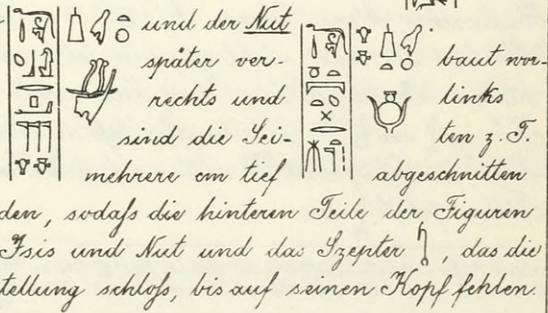 und der Nut
später ver- baut wor-
rechts und links
sind die Sei- ten z. T.
mehrere cm tief abgeschnitten
den, sodaſs die hinteren Teile der Figuren
Isis und Nut und das Szepter , das die
tellung schloſs, bis auf seinen Kopf fehlen.